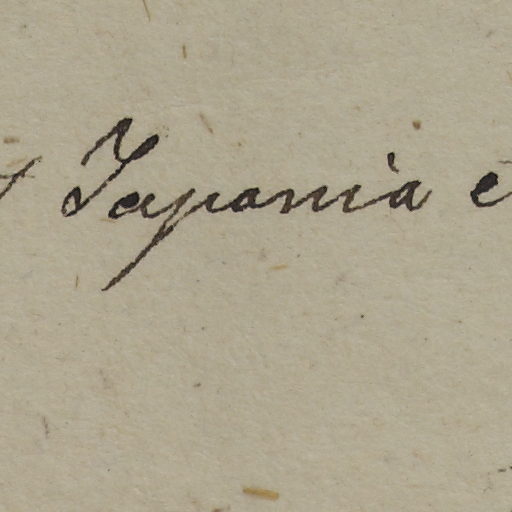 Japania e